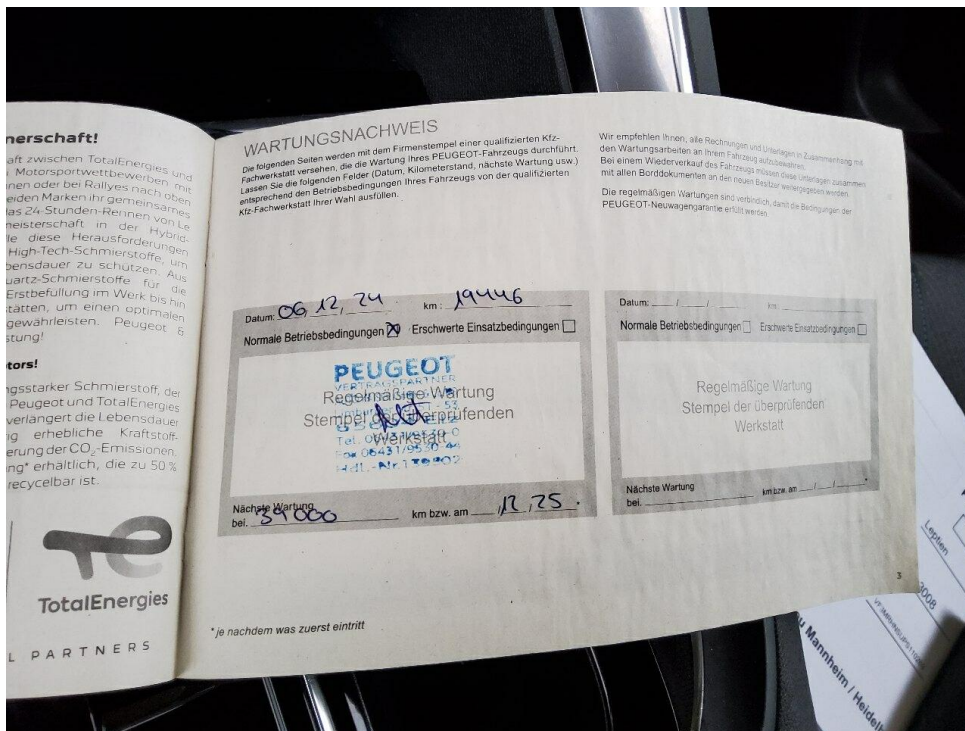 nerschaft!
aft zwischen TotalEnergies und
Motorsportwettbewerben mit
nnen oder bei Rallyes nach oben
eiden Marken ihr gemeinsames
das 24-Stunden-Rennen von Le
meisterschaft in der Hybrid-
lle diese Herausforderungen
High-Tech-Schmierstoffe, um
bensdauer zu schützen. Aus
uartz-Schmierstoffe für die
Erstbefüllung im Werk bis hin
stätten, um einen optimalen
gewährleisten. Peugeot &
stung!
otors!
ngsstarker Schmierstoff, der
Peugeot und TotalEnergies
verlängert die Lebensdauer
ig erhebliche Kraftstoff-
erung der CO₂-Emissionen.
ng* erhältlich, die zu 50 %
recycelbar ist.
TotalEnergies
L PARTNERS
WARTUNGSNACHWEIS
Die folgenden Seiten werden mit dem Firmenstempel einer qualifizierten Kfz-
Fachwerkstatt versehen, die die Wartung Ihres PEUGEOT-Fahrzeugs durchführt.
Lassen Sie die folgenden Felder (Datum, Kilometerstand, nächste Wartung usw.)
entsprechend den Betriebsbedingungen Ihres Fahrzeugs von der qualifizierten
Kfz-Fachwerkstatt Ihrer Wahl ausfüllen.
Wir empfehlen Ihnen, alle Rechnungen und Unterlagen in Zusammenhang mit
den Wartungsarbeiten an Ihrem Fahrzeug aufzubewahren.
Bei einem Wiederverkauf des Fahrzeugs müssen diese Unterlagen zusammen
mit allen Borddokumenten an den neuen Besitzer weitergegeben werden.
Die regelmäßigen Wartungen sind verbindlich, damit die Bedingungen der
PEUGEOT-Neuwagengarantie erfüllt werden.
Datum: 06,12,24 km: 19446
Normale Betriebsbedingungen Erschwerte Einsatzbedingungen
PEUGEOT
VERTRAGSPARTNER
Regelmäßige Wartung
Stempel der überprüfenden
Werkstatt
Fax 06431/9530-44
Nächste Wartung
bei. 39000 km bzw. am 12,25.
Datum: / / km:
Normale Betriebsbedingungen Erschwerte Einsatzbedingungen
Regelmäßige Wartung
Stempel der überprüfenden
Werkstatt
Nächste Wartung
bei. km bzw. am / / .
3
*je nachdem was zuerst eintritt
Leptien
3008
u Mannheim / Heidel